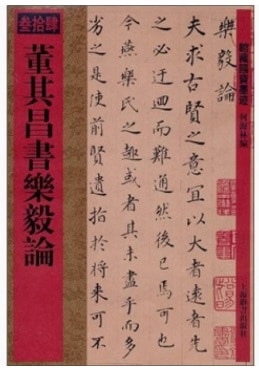 叁拾肆
董其昌書樂毅論
館藏國寶墨迹
何海林編
樂毅論
夫求古賢之意宜以大者遠者先
之必迂迴而難通然後已焉可也
今燕樂氏之趣或者其未盡乎而多
劣之是使前賢遺指於將來可不
上海辭書出版社